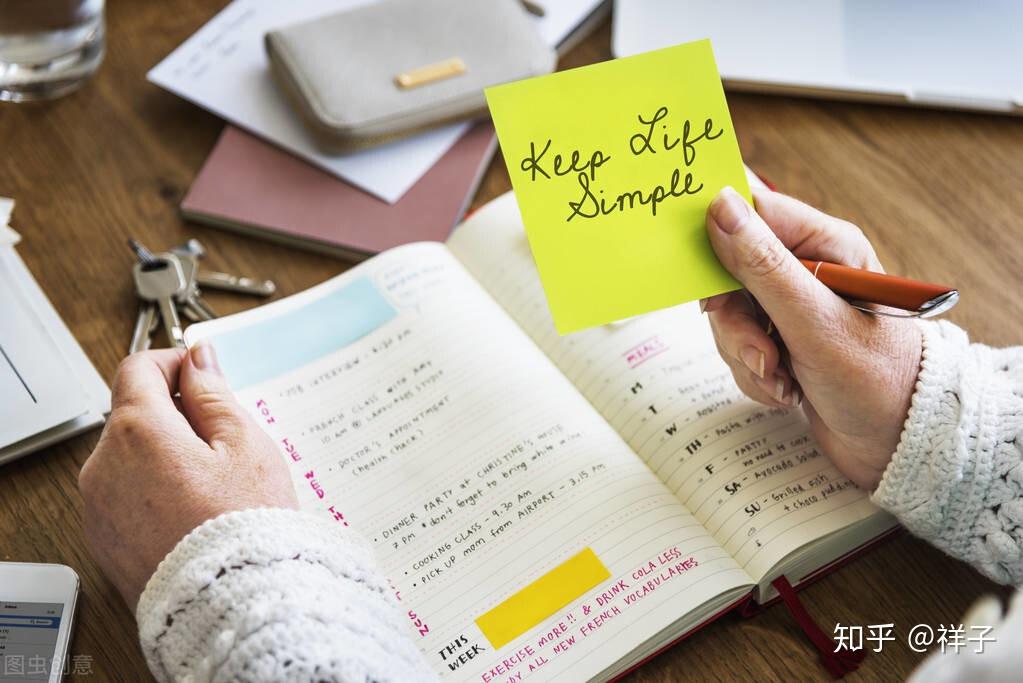 Keep Life
Simple
JOB INTERVIEW -
FRENCH CLASS WITH AMY
10 AM @ LANGUAGES STUDIO
DOCTOR'S APPOINTMENT
(health check?)
DINNER PARTY at CHRISTINE'S HOUSE
7 PM * don't forget to bring white wine
COOKING CLASS - 9.30 AM
PICK UP mom from AIRPORT - 3.15 PM
MON TUE WED TH
SUN
THIS
WEEK
EXERCISE MORE!! & DRINK COLA LESS
ALL NEW FRENCH VOCABULARIES
MEALS
M
T
W - Roasted
TH - Pasta with
F - PARTY
no need to cook
SA - Avocado Salad
SU - Grilled fish
+ choco pudding
Inbox
图虫创意
知乎 @祥子